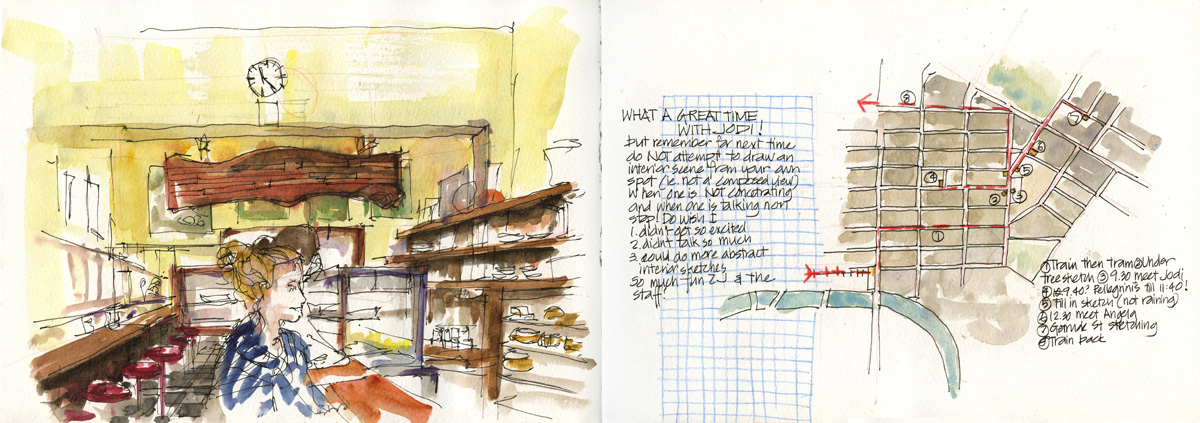 WHAT A GREAT TIME
WITH JODI!
but remember for next time
do NOT attempt to draw an
interior scene from your own
spot (ie. not a composed view)
When one is NOT concentrating
and when one is talking non
stop! Do wish I
1. didn't get so excited
2. didn't talk so much
3. could do more abstract
interior sketches
So much fun & the
staff.
8
7
6
5
4
3
2
1
① Train then tram @ under
tree sketch ③ 9.30 meet Jodi
9.40? Pellegrini's till 11:40!
⑤ Fill in sketch (not raining)
⑥ 12.30 meet Angela
⑦ Gertrude St sketching
⑧ Train back